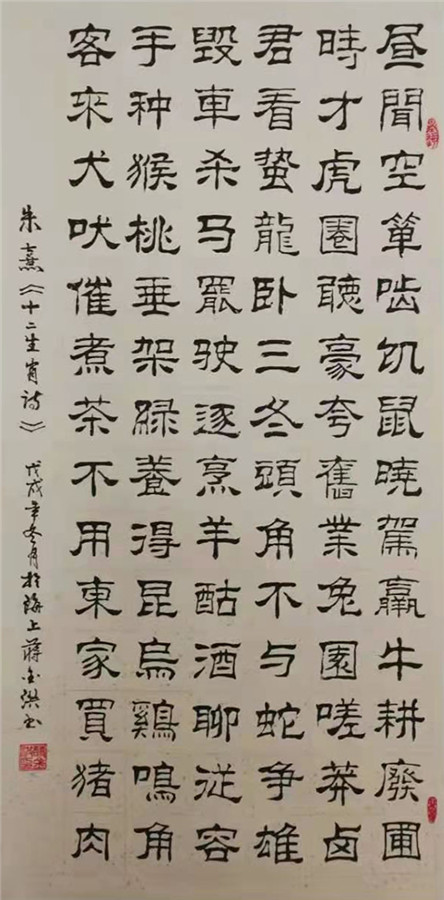 昼聞空箪啮饥鼠曉駕羸牛耕廢圃
時才虎圈聽豪夸舊業兔園嗟莽卤
君看蛰龍卧三冬頭角不与蛇争雄
毁車杀马罷驶逐烹羊酤酒聊從容
手种猴桃垂架緑養得昆烏鷄鳴角
客来犬吠催煮茶不用東家買猪肉
朱熹《十二生肖诗》
戊戌年冬月於海上蒋金洪书